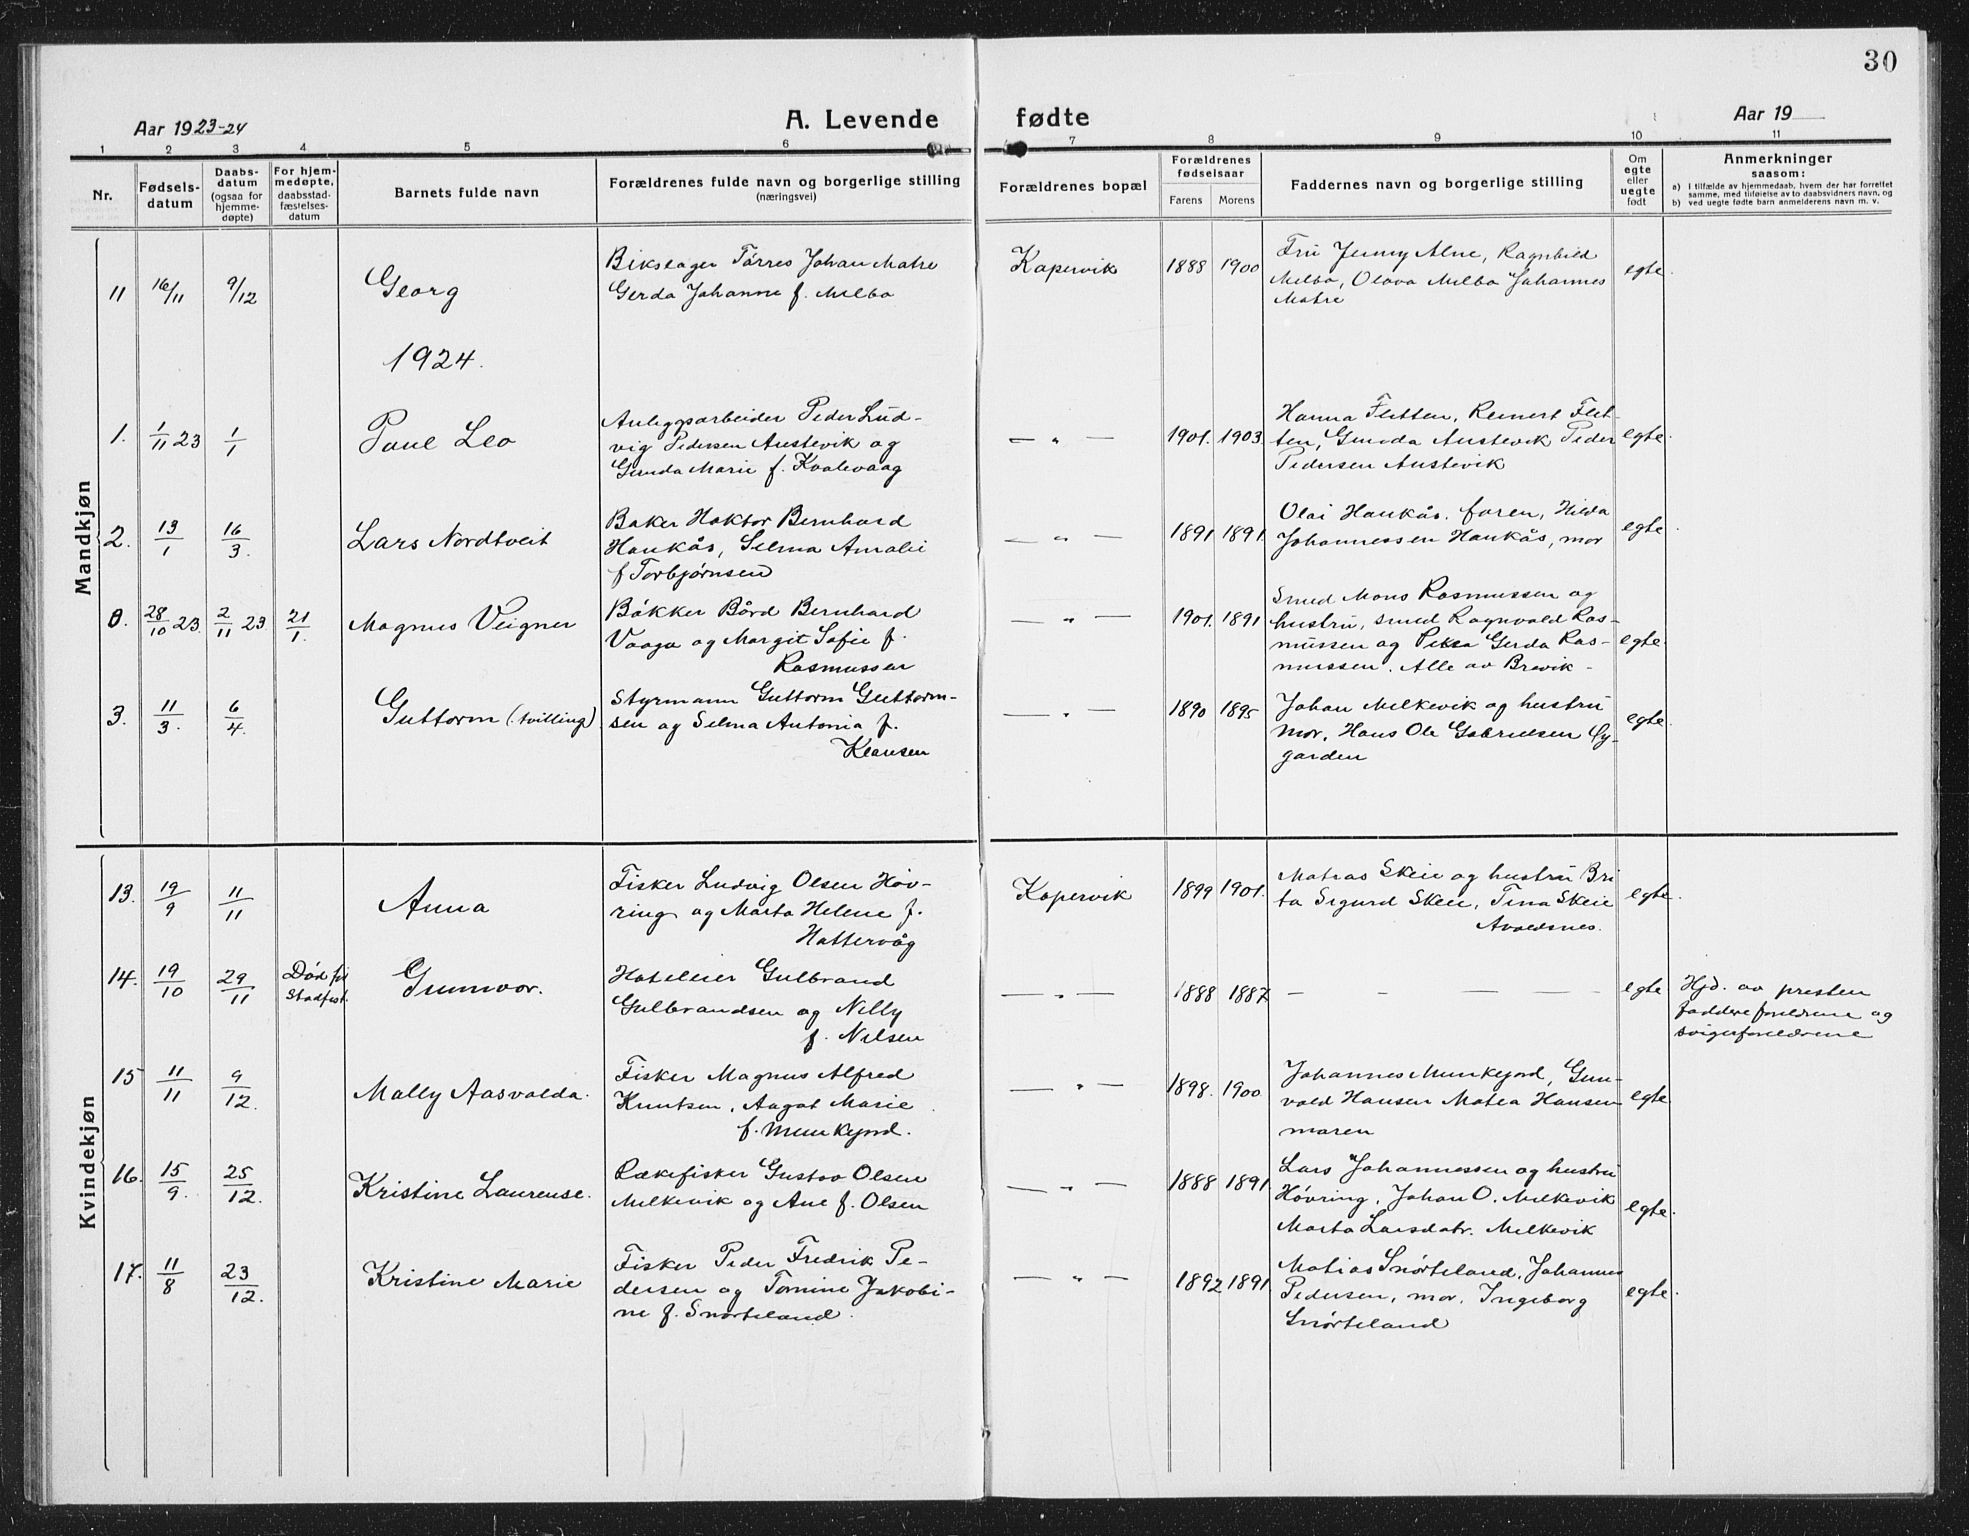 30
Aar 1923-24
A. Levende fødte
Aar 19
1 2 3 4 5 6 7 8 9 10 11
Nr.
Fødsels-
datum
Daabs-
datum
(ogsaa for
hjemme-
døpte)
For hjem-
medøpte,
daabsstad-
fæstelses-
datum
Barnets fulde navn
Forældrenes fulde navn og borgerlige stilling
(næringsvei)
Forældrenes bopæl
Forældrenes
fødselsaar
Farens Morens
Faddernes navn og borgerlige stilling
Om
egte
eller
uegte
født
Anmerkninger
saasom:
a) I tilfælde av hjemmedaab, hvem der har forrettet
samme, med tilføielse av to daabsvidners navn, og
b) ved uegte fødte barn anmelderens navn m. v.
Mandkjøn
11 16/11 9/12 Georg
Bikslager Tørres Johan Matre
Gerda Johanne f. Melbo
Kopervik 1888 1900
Fru Jenny Alne, Ragnhild
Melbo, Olava Melbo Johannes
Matre
egte.
1924.
1. 1/11 23 1/1 Paul Leo
Anleggsarbeider Peder Lud-
vig Pedersen Austevik og
Gunda Marie f. Kvalevaag
— " — 1901. 1903.
Hanna Fletten, Reinert Flet-
ten, Gunda Austevik Peder
Pedersen Austevik
egte.
2. 13/1 16/3. Lars Nordtveit
Baker Haktor Bernhard
Haukås, Selma Amalie
f Torbjørnsen
— " — 1891 1891.
Olai Haukås, faren, Hilda
Johannessen Haukås, mor
egte.
0. 28/10 23. 2/11 23 21/1. Magnus Veigner
Bøkker Bård Bernhard
Vaaga og Margit Sofie f.
Rasmussen
— " — 1901. 1891
Smed Mons Rasmussen og
hustru, smed Ragnvald Ras-
mussen og Gerda Ras-
mussen. Alle av Brevik -
egte.
3. 11/3. 6/4. Guttorm (tvilling)
Styrmann Guttorm Guttorm-
sen og Selma Antonia f.
Klausen
— " — 1890 1895
Johan Melkevik og hustru
mor, Hans Ole Gabrielsen Øy-
garden
egte.
Kvindekjøn
13. 19/9 11/11 Anna
Fisker Ludvig Olsen Høv-
ring og Marta Helene f.
Hattervåg
Kopervik 1899 1901.
Matias Skeie og hustru Bri
ta Sigurd Skeie, Tina Skeie
Avaldsnes.
egte.
14. 19/10 29/11 Død før
Stadfest. Gunnvor.
Hoteleier Gulbrand
Gulbrandsen og Nelly
f. Nilsen
— " — 1888 1887 — - — —
egte
Hjd. av presten
faddere foreldrene og
svigerforeldrene
15 11/11 9/12. Mally Aasvalda.
Fisker Magnus Alfred
Knutsen, Aagot Marie
f. Munkejord.
— " — 1898. 1900
Johannes Munkejord, Gun-
vald Hansen Matea Hansen
maren
egte
16. 15/9. 25/12. Kristine Laurense.
Rækefisker Gustav Olsen
Melkevik og Ane f. Olsen
— " — 1888 1891.
Lars Johannessen og hustru
Høvring, Johan O. Melkevik
Marta Larsdatr. Melkevik
egte.
17. 11/8 23/12. Kristine Marie
Fisker Peder Fredrik Pe-
dersen og Tomine Jakobi-
ne f. Snørteland.
— " — 1892 1891
Matias Snørteland, Johannes
Pedersen, mor, Ingeborg
Snørteland
egte.